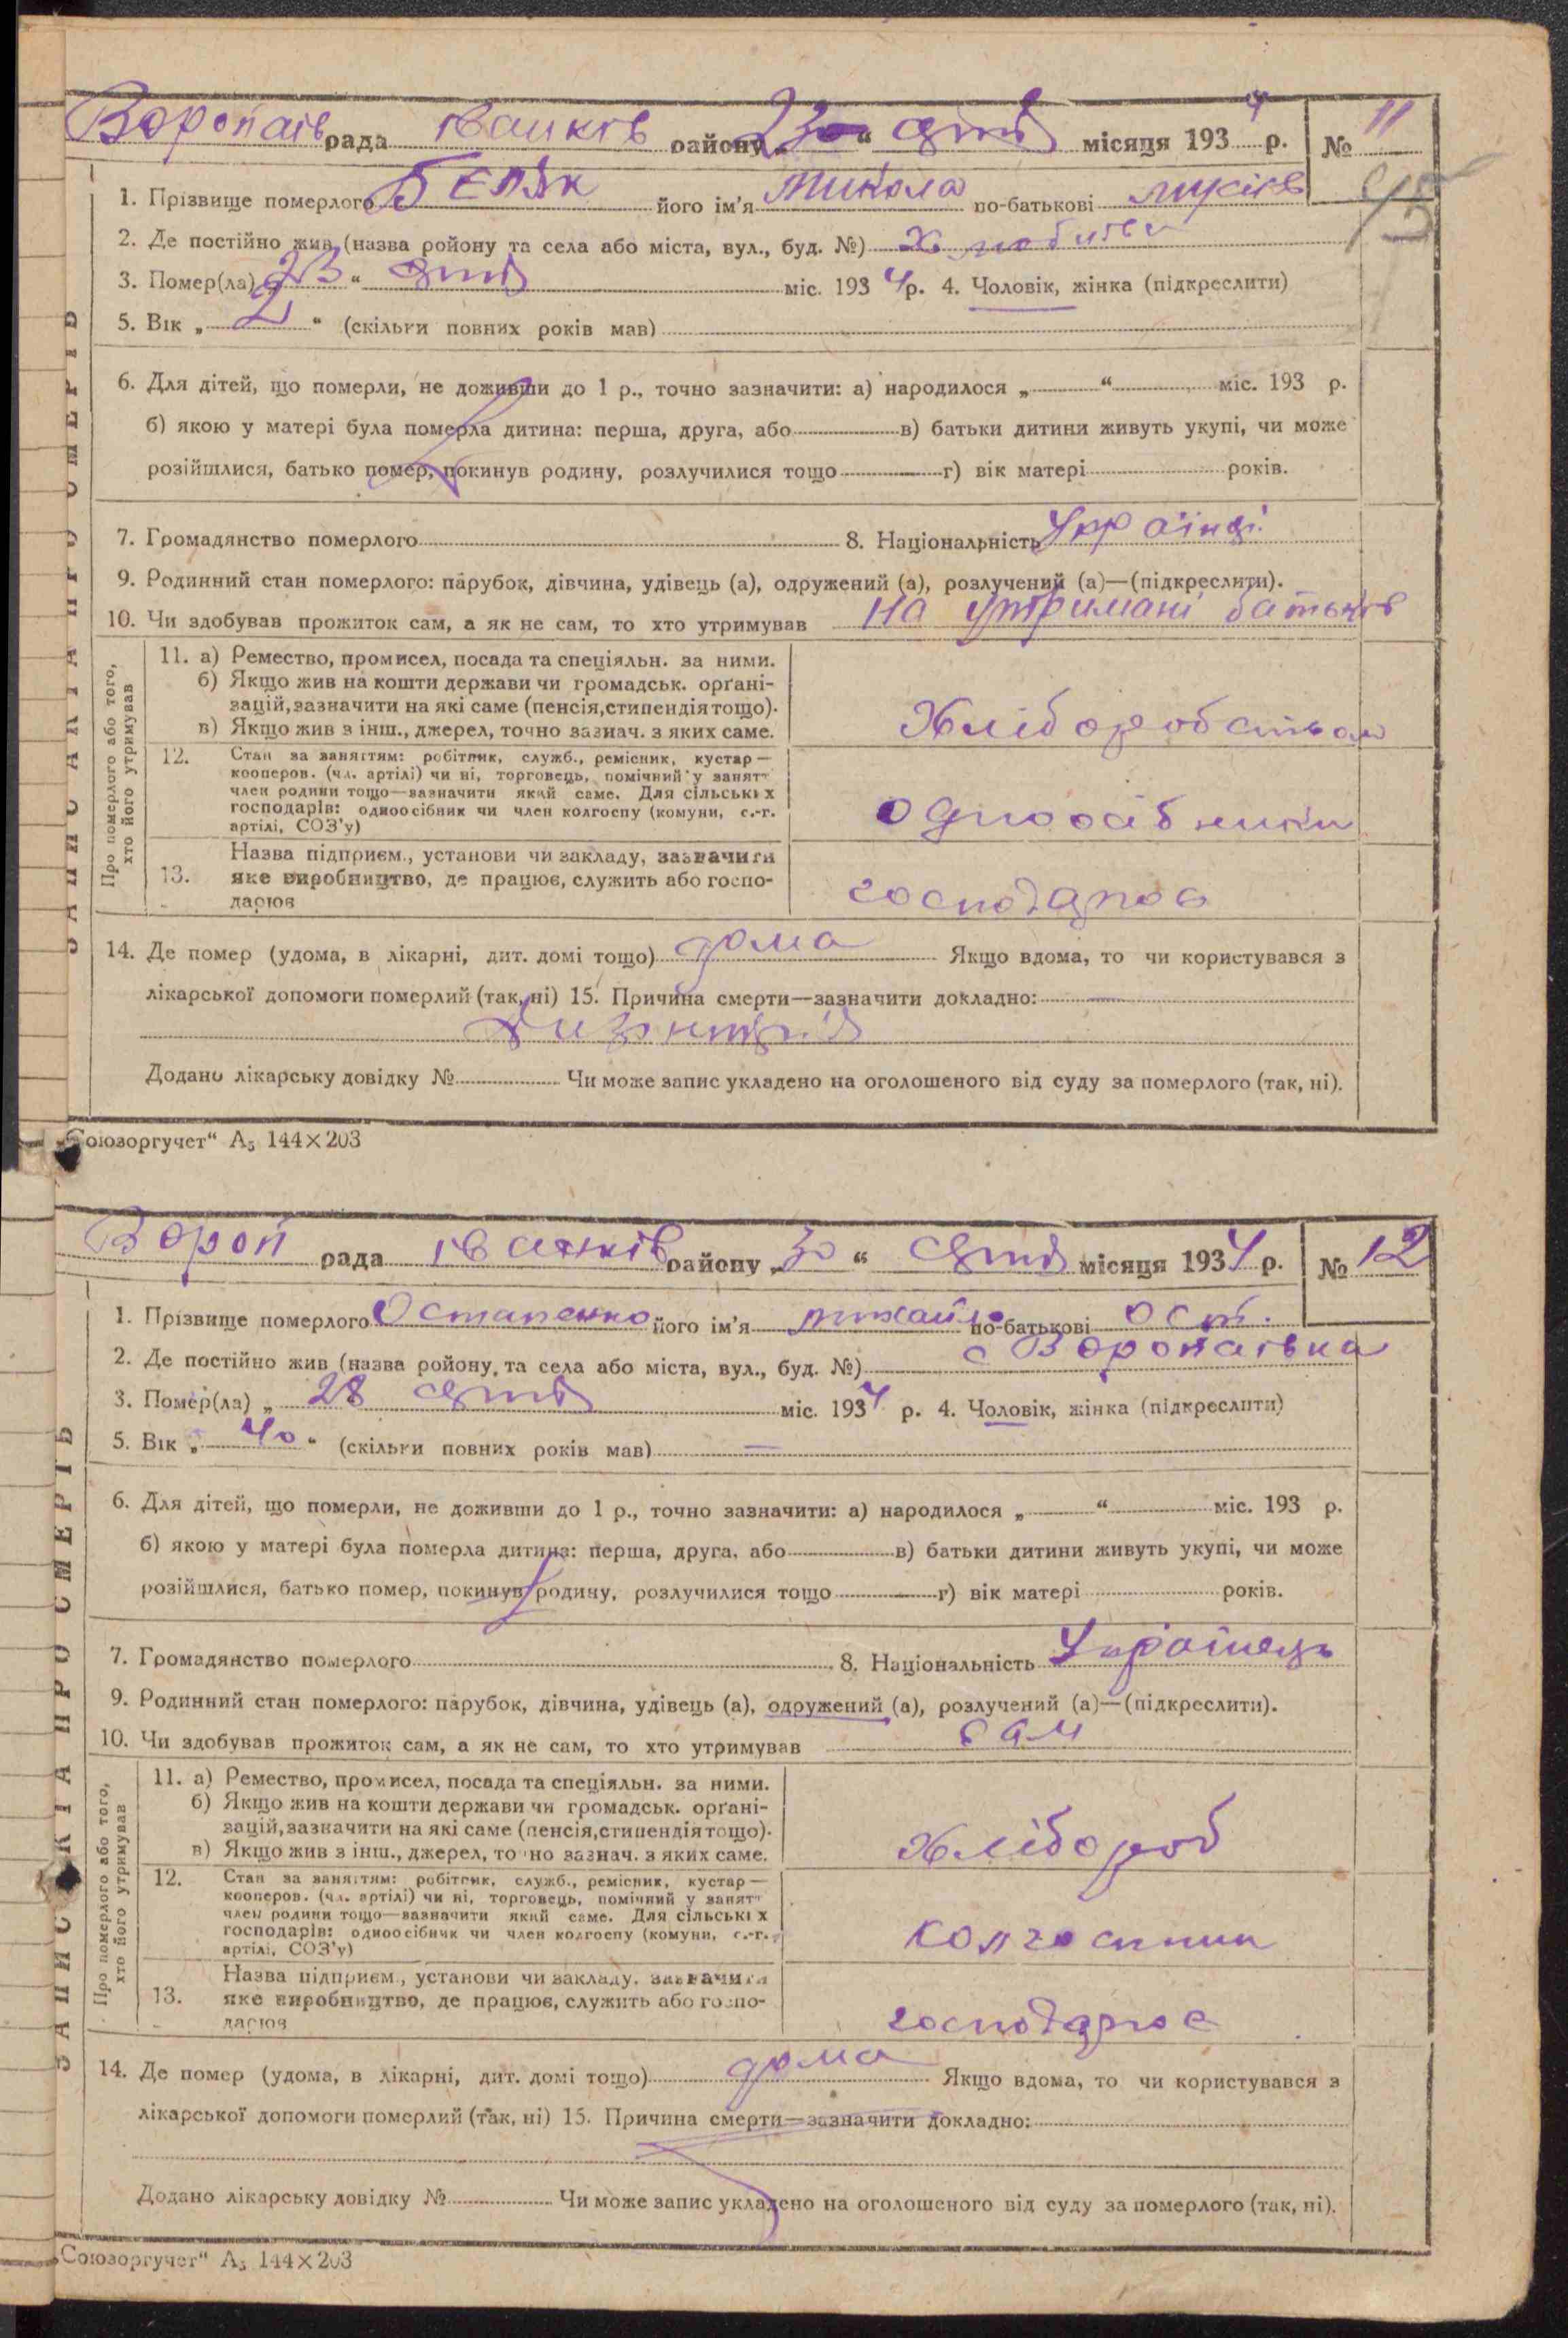 Воропаїв рада іванків району „23“ січня місяця 1934 р. № 11
1. Прізвище померлого Беляк його ім'я Микола по-батькові
2. Де постійно жив (назва ройону та села або міста, вул., буд. №)
3. Помер(ла) „23“ січня міс. 1934 р. 4. Чоловік, жінка (підкреслити)
5. Вік „2“ (скільки повних років мав)
6. Для дітей, що померли, не доживши до 1 р., точно зазначити: а) народилося „ “ міс. 193 р.
б) якою у матері була померла дитина: перша, друга, або в) батьки дитини живуть укупі, чи може
розійшлися, батько помер, покинув родину, розлучилися тощо г) вік матері років.
7. Громадянство померлого 8. Національність
9. Родинний стан померлого: парубок, дівчина, удівець (а), одружений (а), розлучений (а)—(підкреслити).
10. Чи здобував прожиток сам, а як не сам, то хто утримував на утримані батьків
Про померлого або того,
хто його утримував
11. а) Ремество, промисел, посада та спеціяльн. за ними.
б) Якщо жив на кошти держави чи громадськ. орґані-
зацій, зазначити на які саме (пенсія, стипендія тощо).
в) Якщо жив з інш., джерел, точно зазнач. з яких саме.
Хліборобством
12. Стан за заняттям: робітник, служб., ремісник, кустар—
кооперов. (чл. артілі) чи ні, торговець, помічний у занятт
член родини тощо—зазначити який саме. Для сільських
господарів: одноосібник чи член колгоспу (комуни, с.-г.
артілі, СОЗ'у)
одноосібники
13. Назва підприєм., установи чи закладу, зазначити
яке виробництво, де працює, служить або госпо-
дарює
господарює
14. Де помер (удома, в лікарні, дит. домі тощо) дома Якщо вдома, то чи користувався з
лікарської допомоги померлий (так, ні) 15. Причина смерти—зазначити докладно:
Дизентерія
Додано лікарську довідку № Чи може запис укладено на оголошеного від суду за померлого (так, ні).
ЗАПИС АКТА ПРО СМЕРТЬ
„Союзоргучет“ А5 144×203
Вороп рада іванків району „30“ січня місяця 1934 р. № 12
1. Прізвище померлого Остапенко його ім'я михайло по-батькові Ост.
2. Де постійно жив (назва ройону та села або міста, вул., буд. №) с Воропаївка
3. Помер(ла) „28 січня міс. 1934 р. 4. Чоловік, жінка (підкреслити)
5. Вік „40“ (скільки повних років мав) —
6. Для дітей, що померли, не доживши до 1 р., точно зазначити: а) народилося „ “ міс. 193 р.
б) якою у матері була померла дитина: перша, друга, або в) батьки дитини живуть укупі, чи може
розійшлися, батько помер, покинув родину, розлучилися тощо г) вік матері років.
7. Громадянство померлого 8. Національність Українець
9. Родинний стан померлого: парубок, дівчина, удівець (а), одружений (а), розлучений (а)—(підкреслити).
10. Чи здобував прожиток сам, а як не сам, то хто утримував сам
Про померлого або того,
хто його утримував
11. а) Ремество, промисел, посада та спеціяльн. за ними.
б) Якщо жив на кошти держави чи громадськ. орґані-
зацій, зазначити на які саме (пенсія, стипендія тощо).
в) Якщо жив з інш., джерел, точно зазнач. з яких саме.
Хлібороб
12. Стан за заняттям: робітник, служб., ремісник, кустар—
кооперов. (чл. артілі) чи ні, торговець, помічний у занятт
член родини тощо—зазначити який саме. Для сільських
господарів: одноосібник чи член колгоспу (комуни, с.-г.
артілі, СОЗ'у)
колгоспник
13. Назва підприєм., установи чи закладу, зазначити
яке виробництво, де працює, служить або госпо-
дарює
господарює
14. Де помер (удома, в лікарні, дит. домі тощо) дома Якщо вдома, то чи користувався з
лікарської допомоги померлий (так, ні) 15. Причина смерти—зазначити докладно:
Додано лікарську довідку № Чи може запис укладено на оголошеного від суду за померлого (так, ні).
ЗАПИС АКТА ПРО СМЕРТЬ
„Союзоргучет“ А5 144×203